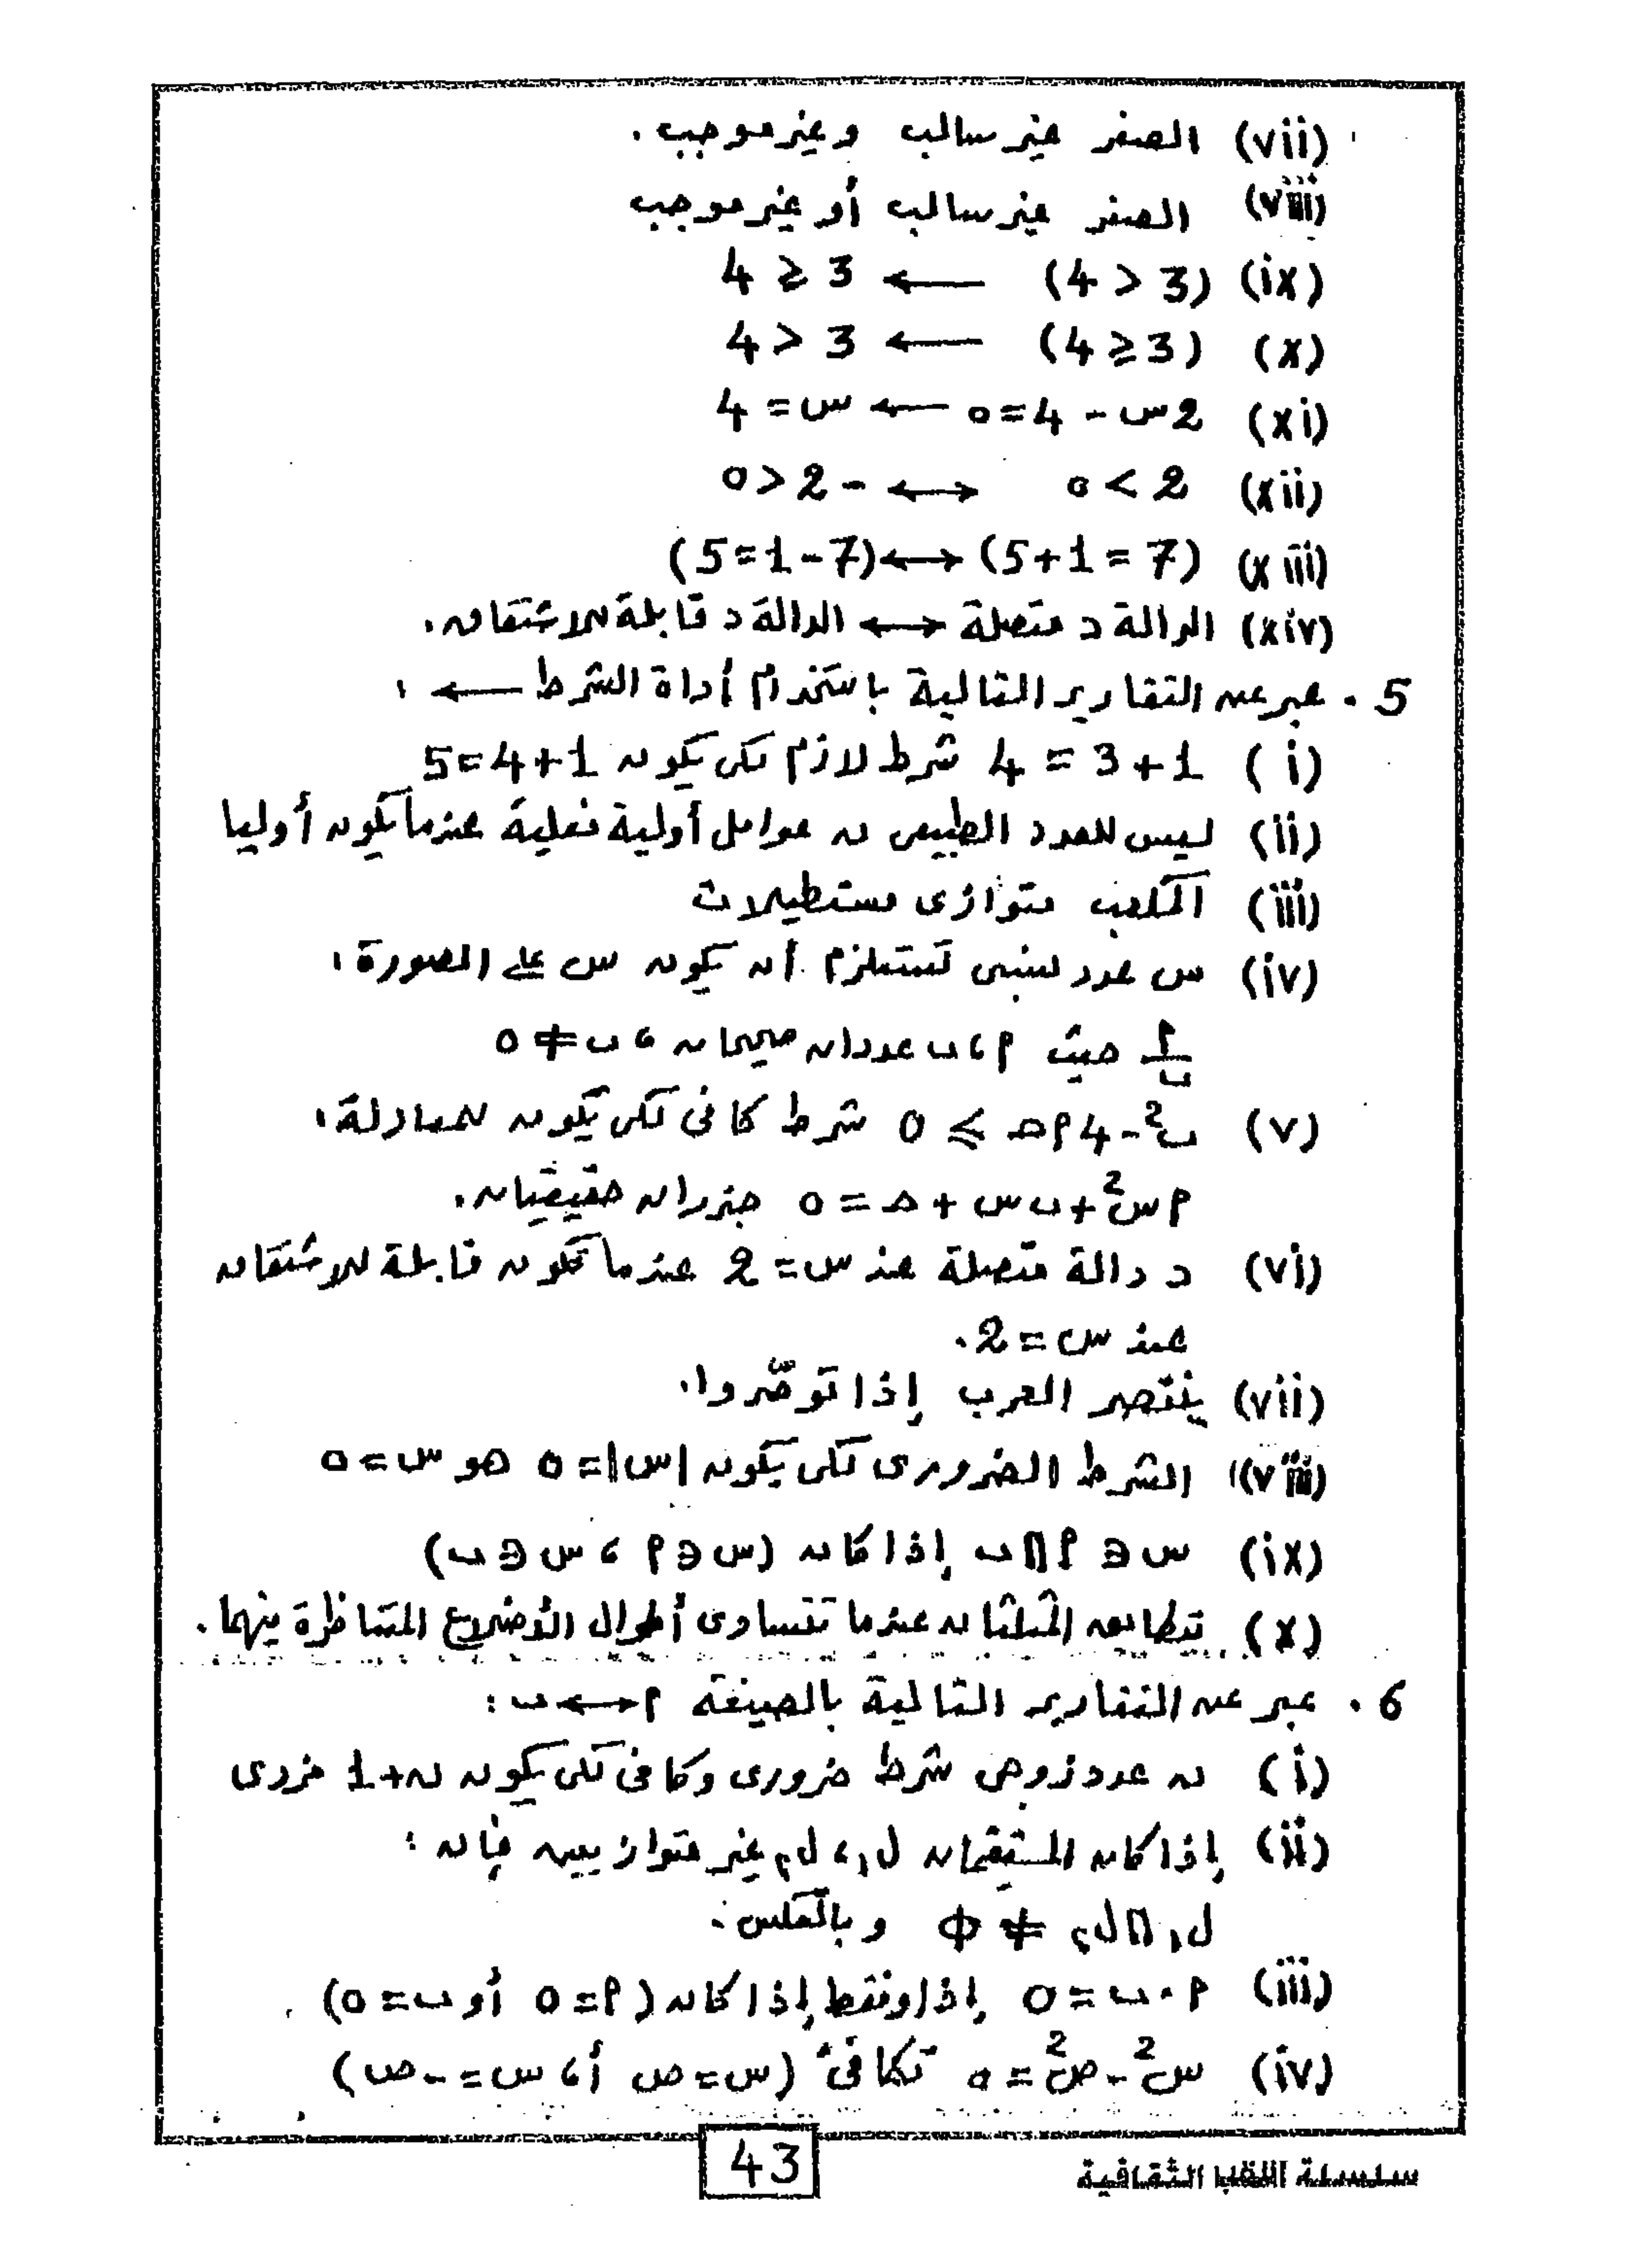 (vii) الصفر غير سالب وغير موجب.
(viii) الصفر غير سالب أو غير موجب
(ix) (3 < 4) ← 3 ≤ 4
(x) (3 ≤ 4) ← 3 < 4
(xi) 2س - 4 = 0 ← س = 4
(xii) 2 > 0 ↔ -2 < 0
(xiii) (7 = 1 + 5) ↔ (7 - 1 = 5)
(xiv) الدالة د متصلة ↔ الدالة د قابلة للاشتقاق.
5. عبر عن التقارير التالية باستخدام أداة الشرط ← :
(i) 1 + 3 = 4 شرط لازم لكى يكون 1 + 4 = 5
(ii) ليس للعدد الطبيعى ن عوامل أولية فعلية عندما يكون أوليا
(iii) المكعب متوازى مستطيلات
(iv) س عدد نسبى تستلزم أن يكون س على الصورة:
أ/ب حيث أ، ب عددان صحيحان، ب ≠ 0
(v) ب² - 4أجـ ≥ 0 شرط كافى لكى يكون للمعادلة:
أس² + ب س + جـ = 0 جذران حقيقيان.
(vi) د دالة متصلة عند س = 2 عندما تكون قابلة للاشتقاق
عند س = 2.
(vii) ينتصر العرب إذا توحّدوا.
(viii) الشرط الضرورى لكى يكون |س| = 0 هو س = 0
(ix) س ∈ أ ∩ ب إذا كان (س ∈ أ ، س ∈ ب)
(x) يتطابق المثلثان عندما تتساوى أطوال الأضلاع المتناظرة فيهما.
6. عبر عن التقارير التالية بالصيغة أ ↔ ب :
(i) ن عدد زوجى شرط ضرورى وكافى لكى يكون ن + 1 فردى
(ii) إذا كان المستقيمان ل₁، ل₂ غير متوازيين فإن :
ل₁ ∩ ل₂ ≠ Φ وبالعكس.
(iii) أ . ب = 0 إذا وفقط إذا كان (أ = 0 أو ب = 0).
(iv) س² - ص² = 0 تكافئ (س = ص أ، س = - ص)
43
سلسلة الثقافية